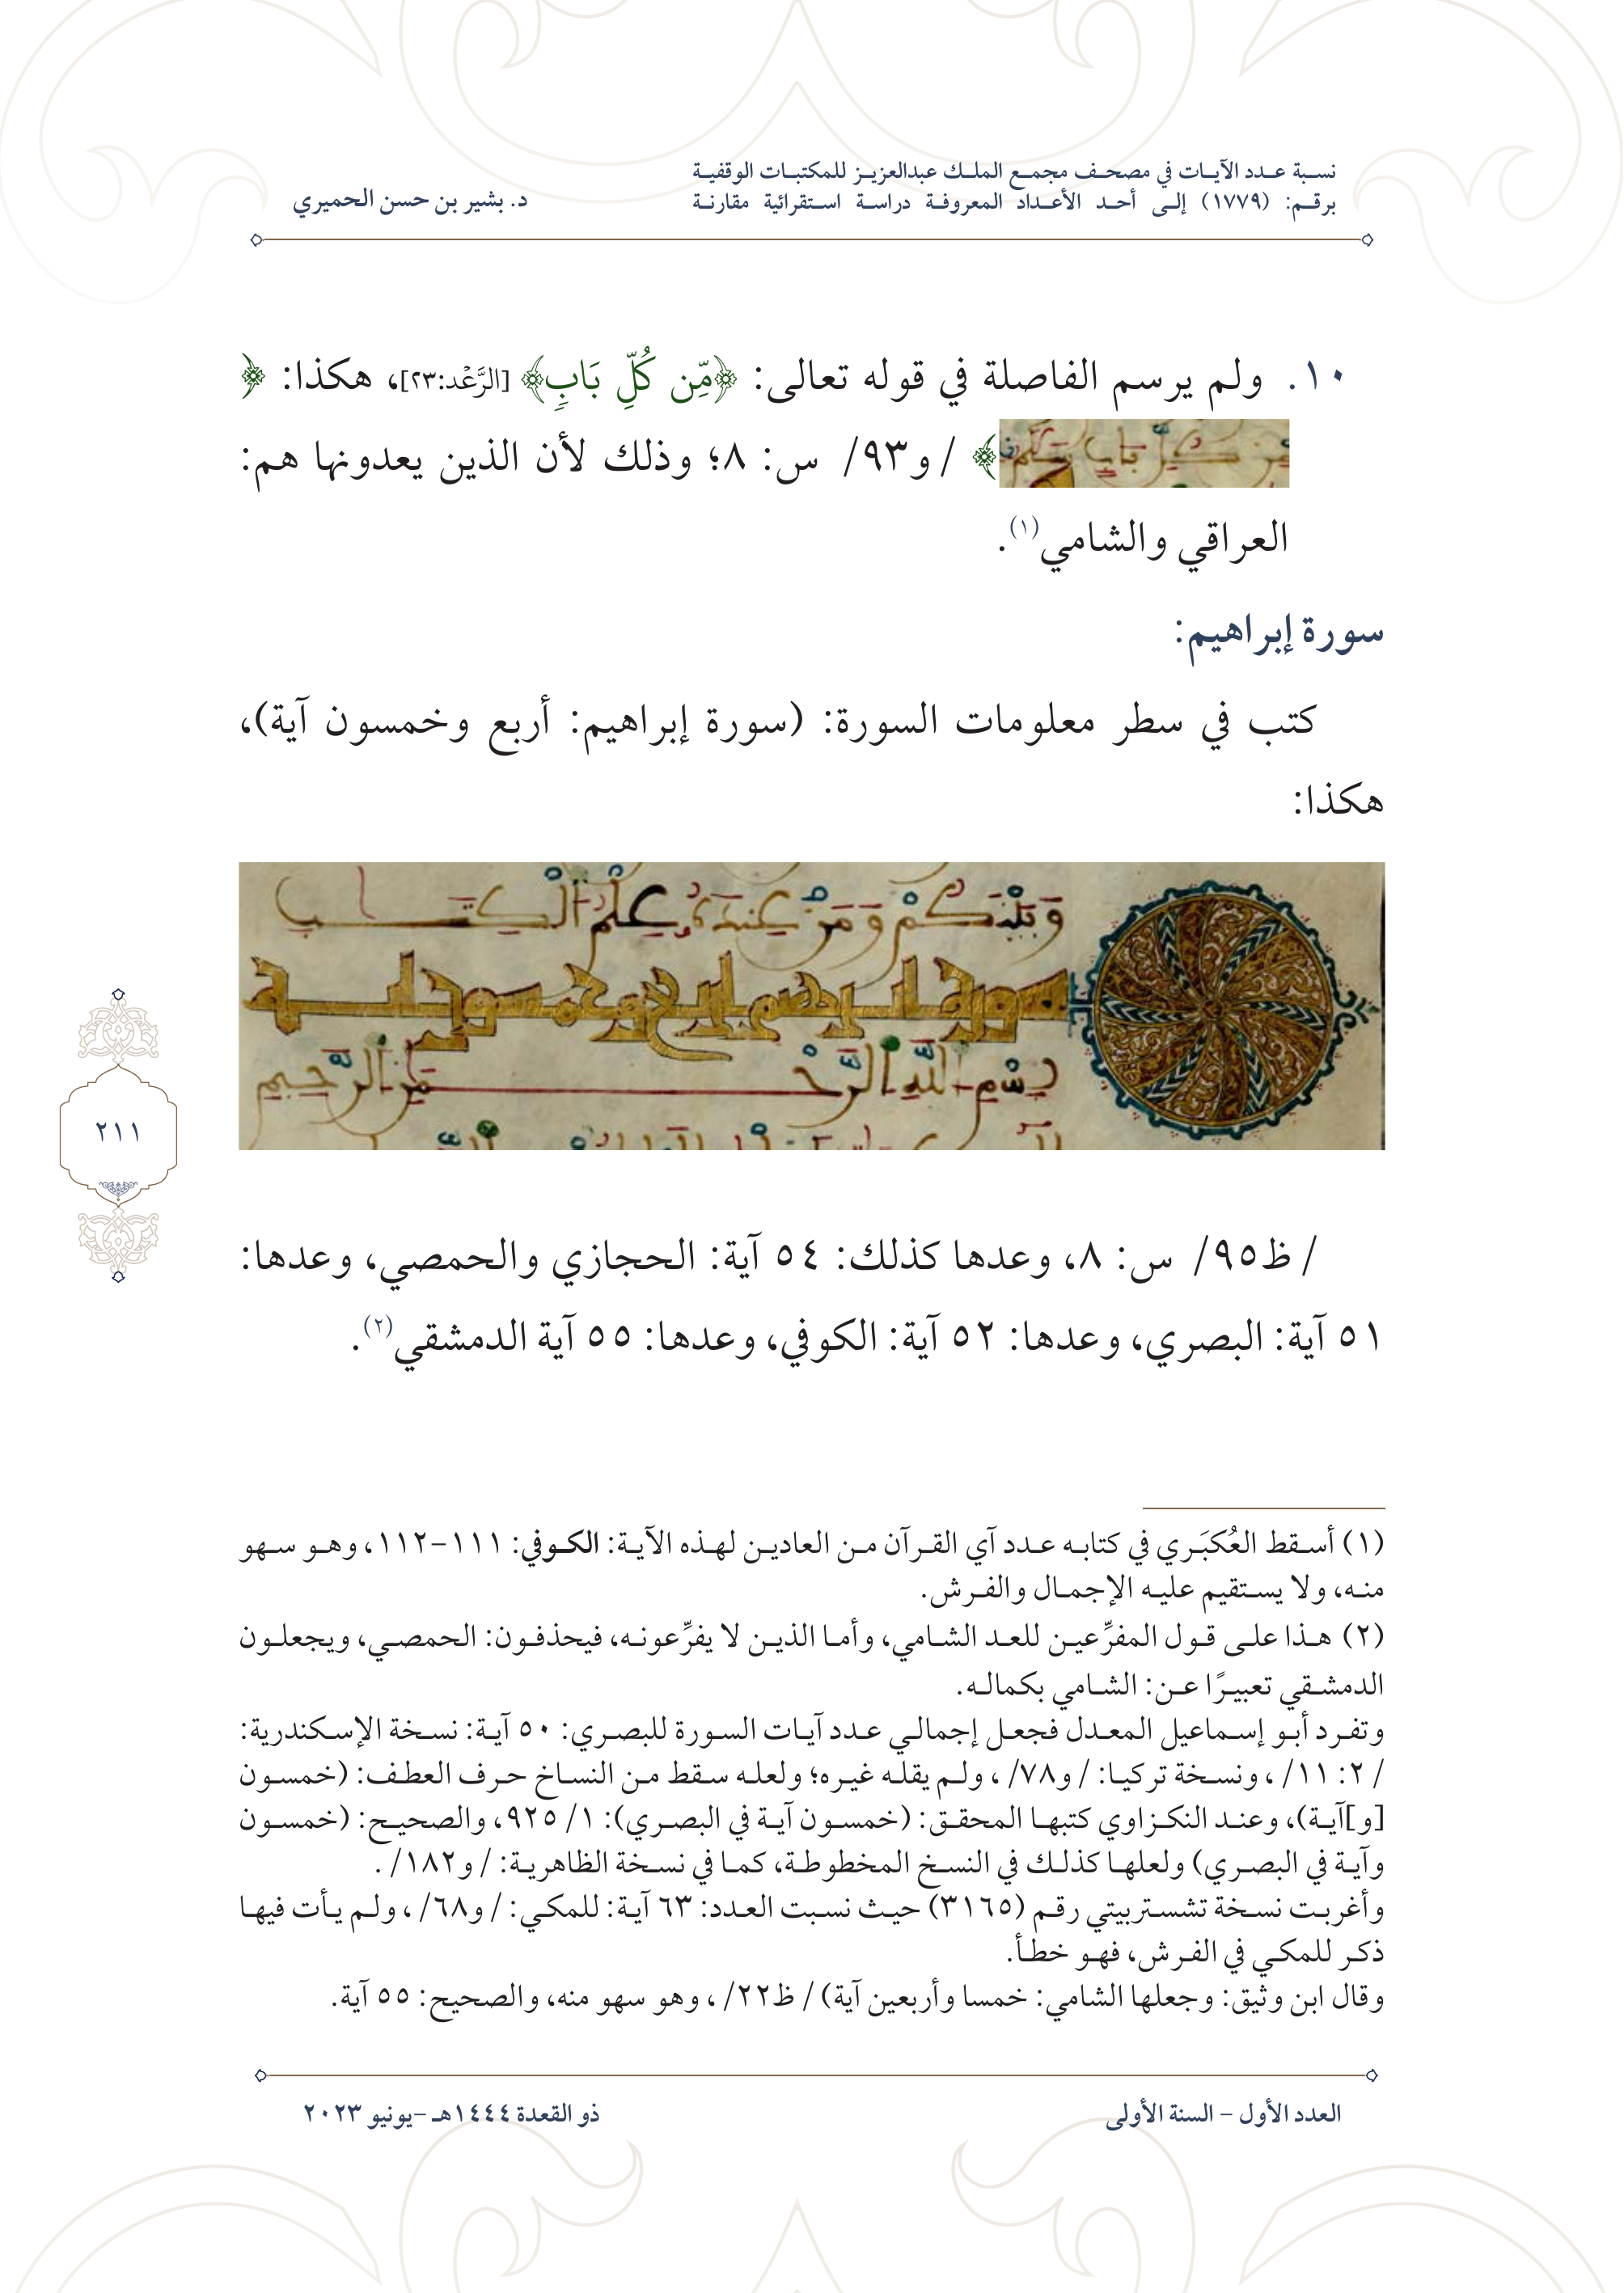 نسبة عدد الآيات في مصحف مجمع الملك عبدالعزيز للمكتبات الوقفية
برقم: (١٧٧٩) إلى أحد الأعداد المعروفة دراسة استقرائية مقارنة
د. بشير بن حسن الحميري
١٠. ولم يرسم الفاصلة في قوله تعالى: ﴿مِّن كُلِّ بَابٖ﴾ [الرَّعْد:٢٣]، هكذا: ﴿
من كل باب سلم﴾ /و٩٣/ س: ٨؛ وذلك لأن الذين يعدونها هم:
العراقي والشامي(١).
سورة إبراهيم:
كتب في سطر معلومات السورة: (سورة إبراهيم: أربع وخمسون آية)،
هكذا:
وَبَيْنَكُمْ وَمَنْ عِندَهُ عِلْمُ الْكِتَـٰبِ
سورة إبرهيم أربع وخمسون آية
بِسْمِ اللَّهِ الرَّحْمَٰنِ الرَّحِيمِ
/ظ٩٥/ س: ٨، وعدها كذلك: ٥٤ آية: الحجازي والحمصي، وعدها:
٥١ آية: البصري، وعدها: ٥٢ آية: الكوفي، وعدها: ٥٥ آية الدمشقي(٢).
(١) أسقط العُكبَري في كتابه عدد آي القرآن من العادين لهذه الآية: الكوفي: ١١١-١١٢، وهو سهو
منه، ولا يستقيم عليه الإجمال والفرش.
(٢) هذا على قول المفرِّعين للعد الشامي، وأما الذين لا يفرِّعونه، فيحذفون: الحمصي، ويجعلون
الدمشقي تعبيرًا عن: الشامي بكماله.
وتفرد أبو إسماعيل المعدل فجعل إجمالي عدد آيات السورة للبصري: ٥٠ آية: نسخة الإسكندرية:
/٢: ١١/، ونسخة تركيا: /و٧٨/، ولم يقله غيره؛ ولعله سقط من النساخ حرف العطف: (خمسون
[و]آية)، وعند النكزاوي كتبها المحقق: (خمسون آية في البصري): ١/ ٩٢٥، والصحيح: (خمسون
وآية في البصري) ولعلها كذلك في النسخ المخطوطة، كما في نسخة الظاهرية: /و١٨٢/.
وأغربت نسخة تشستربيتي رقم (٣١٦٥) حيث نسبت العدد: ٦٣ آية: للمكي: /و٦٨/، ولم يأت فيها
ذكر للمكي في الفرش، فهو خطأ.
وقال ابن وثيق: وجعلها الشامي: خمسا وأربعين آية) /ظ٢٢/، وهو سهو منه، والصحيح: ٥٥ آية.
٢١١
العدد الأول – السنة الأولى
ذو القعدة ١٤٤٤هـ –يونيو ٢٠٢٣